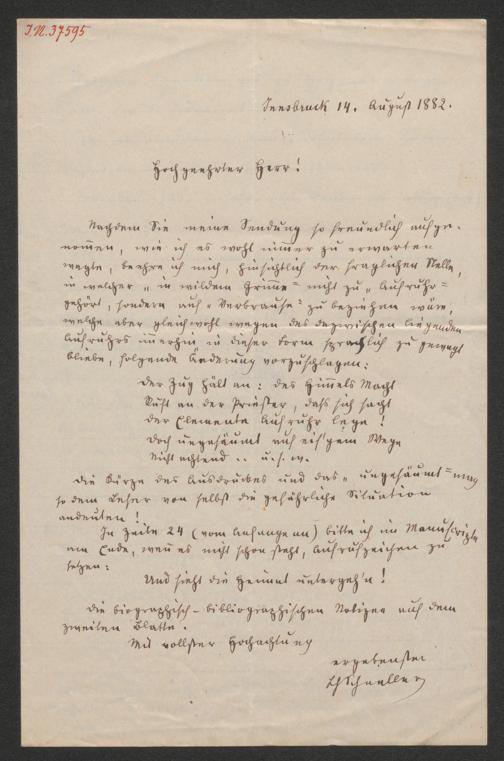 J.N. 37595
Innsbruck 14. August 1882.
Hochgeehrter Herr!
Nachdem Sie meine Sendung so freundlich aufge-
nommen, wie ich es wohl immer zu erwarten
wagte, beehre ich mich, hinsichtlich der fraglichen Stelle,
in welcher „in wildem Grimme" nicht zu „Aufruhr"
gehört, sondern auf „Verbrause" zu beziehen wäre,
welche aber gleichwohl wegen des dazwischen liegenden
Aufruhrs immerhin in dieser Form sprachlich zu gewagt
bliebe, folgende Änderung vorzuschlagen:
Der Zug hält an: des Himmels Macht
Ruft an der Priester, daß sich sacht
Der Elemente Aufruhr lege!
Doch ungesäumt auf eis'gem Wege
Nicht achtend .. u. s. w.
Die Kürze des Ausdruckes und das „ungesäumt" mag
so dem Leser von selbst die gefährliche Situation
andeuten!
In Zeile 24 (vom Anfange an) bitte ich im Manuscripte
am Ende, wenn es nicht schon steht, Aufrufzeichen zu
setzen:
Und sieht die Heimat untergehn!
Die biographisch-bibliographischen Notizen auf dem
zweiten Blatte.
Mit vollster Hochachtung
ergebenster
Ch Schneller